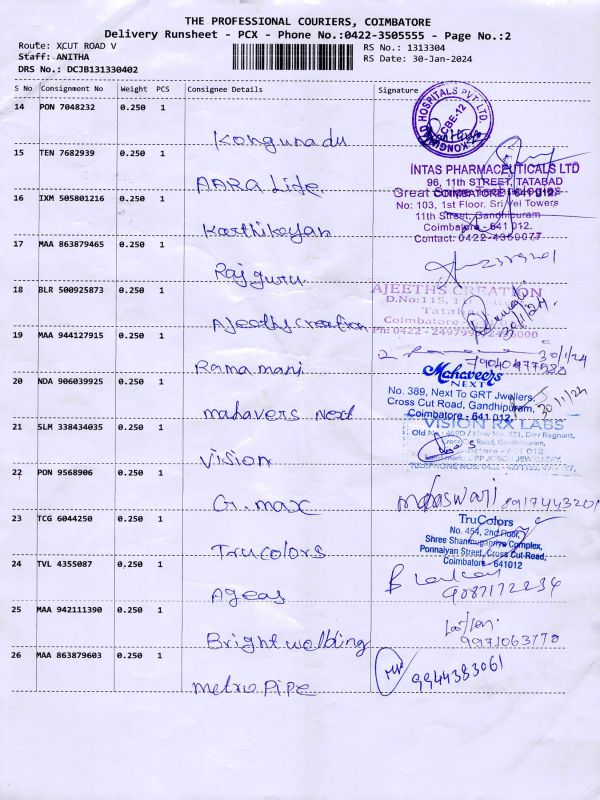 THE PROFESSIONAL COURIERS, COIMBATORE
Delivery Runsheet - PCX - Phone No.:0422-3505555 - Page No.:2
Route: XCUT ROAD V
RS No.: 1313304
Staff: ANITHA
RS Date: 30-Jan-2024
DRS No.: DCJB131330402
S No Consignment No Weight PCS Consignee Details Signature
14 PON 7048232 0.250 1
Kongunadu
KONGUNAD HOSPITALS PVT LTD
CBE-12
15 TEN 7682939 0.250 1
AARA Life
INTAS PHARMACEUTICALS LTD
96, 11th STREET, TATABAD
COIMBATORE - 641 012.
16 IXM 505801216 0.250 1
Karthikeyan
Great
No: 103, 1st Floor. Sri Vel Towers
11th Street, Gandhipuram
Coimbatore - 641 012.
Contact: 0422-4360077
17 MAA 863879465 0.250 1
Rajguru
18 BLR 500925873 0.250 1
Ajeeths creation
AJEETHS CREATION
D.No:115,
Coimbatore
30/1/24
19 MAA 944127915 0.250 1
Ramamani
30/1/24
20 NDA 906039925 0.250 1
mahavers Next
Mahaveers
NEXT
No. 389, Next To GRT Jwellers,
Cross Cut Road, Gandhipuram,
Coimbatore - 641 012.
30/1/24
21 SLM 338434035 0.250 1
Vision
VISION RX LABS
Cross Cut Road, Gandhipuram,
22 PON 9568906 0.250 1
G.max
23 TCG 6044250 0.250 1
Trucolors
TruColors
No. 454, 2nd Floor,
Shree Shanmugapriya Complex,
Ponnaiyan Street, Cross Cut Road,
Coimbatore - 641012
24 TVL 4355087 0.250 1
Ageas
9087172234
25 MAA 942111390 0.250 1
Bright welbing
26 MAA 863879603 0.250 1
metro Pipe
9944383061